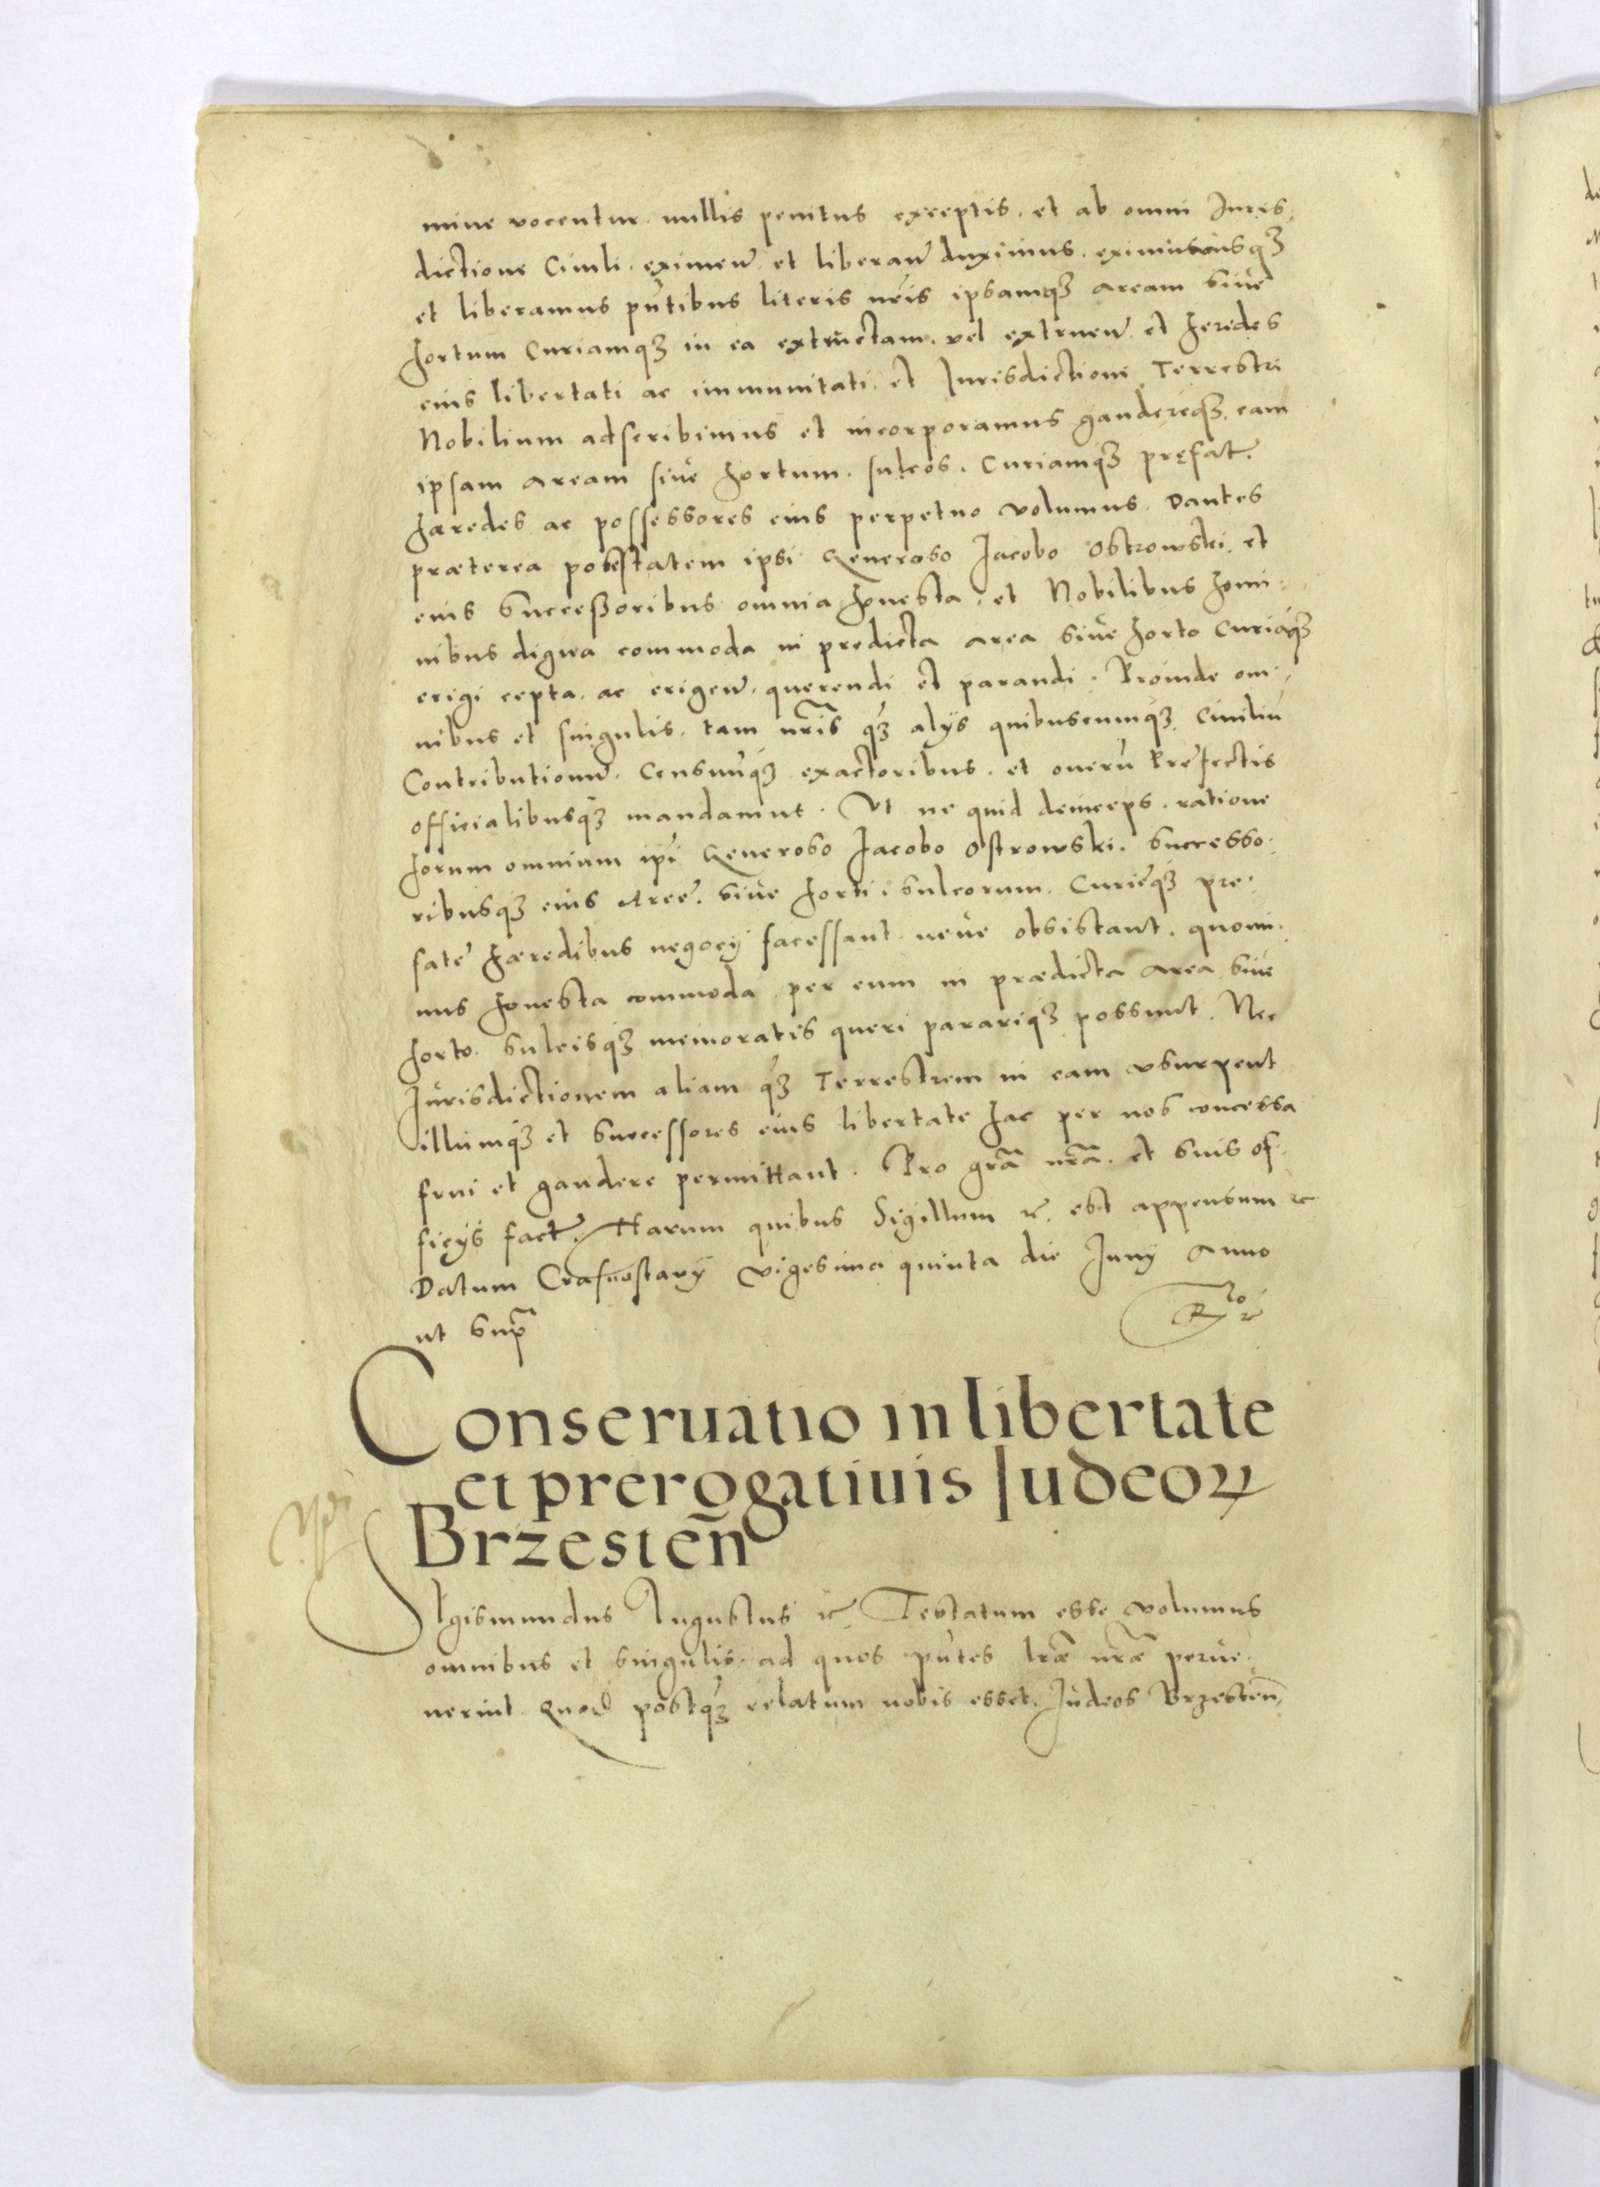 mine vocentur. nullis penitus exceptis. et ab omni Juris,
dictione Ciuili. eximen̄. et liberan̄ duximus. eximimusqꝫ
et liberamus pn̄tibus literis nr̄is ipsamqꝫ aream siue
hortum Curiamqꝫ in ea extructam. vel extruen̄. et heredes
eius libertati ac immunitati. et Jurisdictioni Terrestri
Nobilium adscribimus et incorporamus gaudereqꝫ. eam
ipsam aream siue hortum. sulcos. Curiamqꝫ prefat̄.
hæredes ac possessores eius perpetuo volumus. Dantes
præterea potestatem ipsi Generoso Jacobo Ostrowski. et
eius Successoribus omnia honesta. et Nobilibus homi:
nibus digna commoda in predicta area siue horto Curiaqꝫ
erigi cepta. ac erigen̄. querendi et parandi. Proinde om:
nibus et singulis. tam nr̄is qꝫ alijs quibuscumqꝫ Ciuiliū
Contributionū. Censuūqꝫ exactoribus. et onerū Prefectis
officialibusqꝫ mandamus. Vt ne quid deinceps. ratione
horum omnium ipi Generoso Jacobo Ostrowski. Successo.
ribusqꝫ eius Aree. siue horti. sulcorum. Curieqꝫ pre.
fate hæredibus negocij facessant neue obsistant. quomi.
nus honesta commoda per eum in prædicta area siue
horto. sulcisqꝫ memoratis queri parariqꝫ possunt. Nec
Jurisdictionem aliam qꝫ Terrestrem in eam vsurpent
illumqꝫ et successores eius libertate hac per nos concessa
frui et gaudere permittant. Pro grā nrā. et suis of.
ficijs fact̄. Harum quibus Sigillum &c. est appensum &c
Datum Crasnostavij vigesima quinta die Junij Anno
ut supᷓ
Conseruatio in libertate
et prerogatiuis Judeoꝝ
Brzesten̄
SIgismundus Augustus &c Testatum esse volumus
omnibus et singulis. ad quos pn̄tes lr̄æ nr̄æ perue.
nerint. Quod postqꝫ relatum nobis esset. Judeos Brzesten̄,